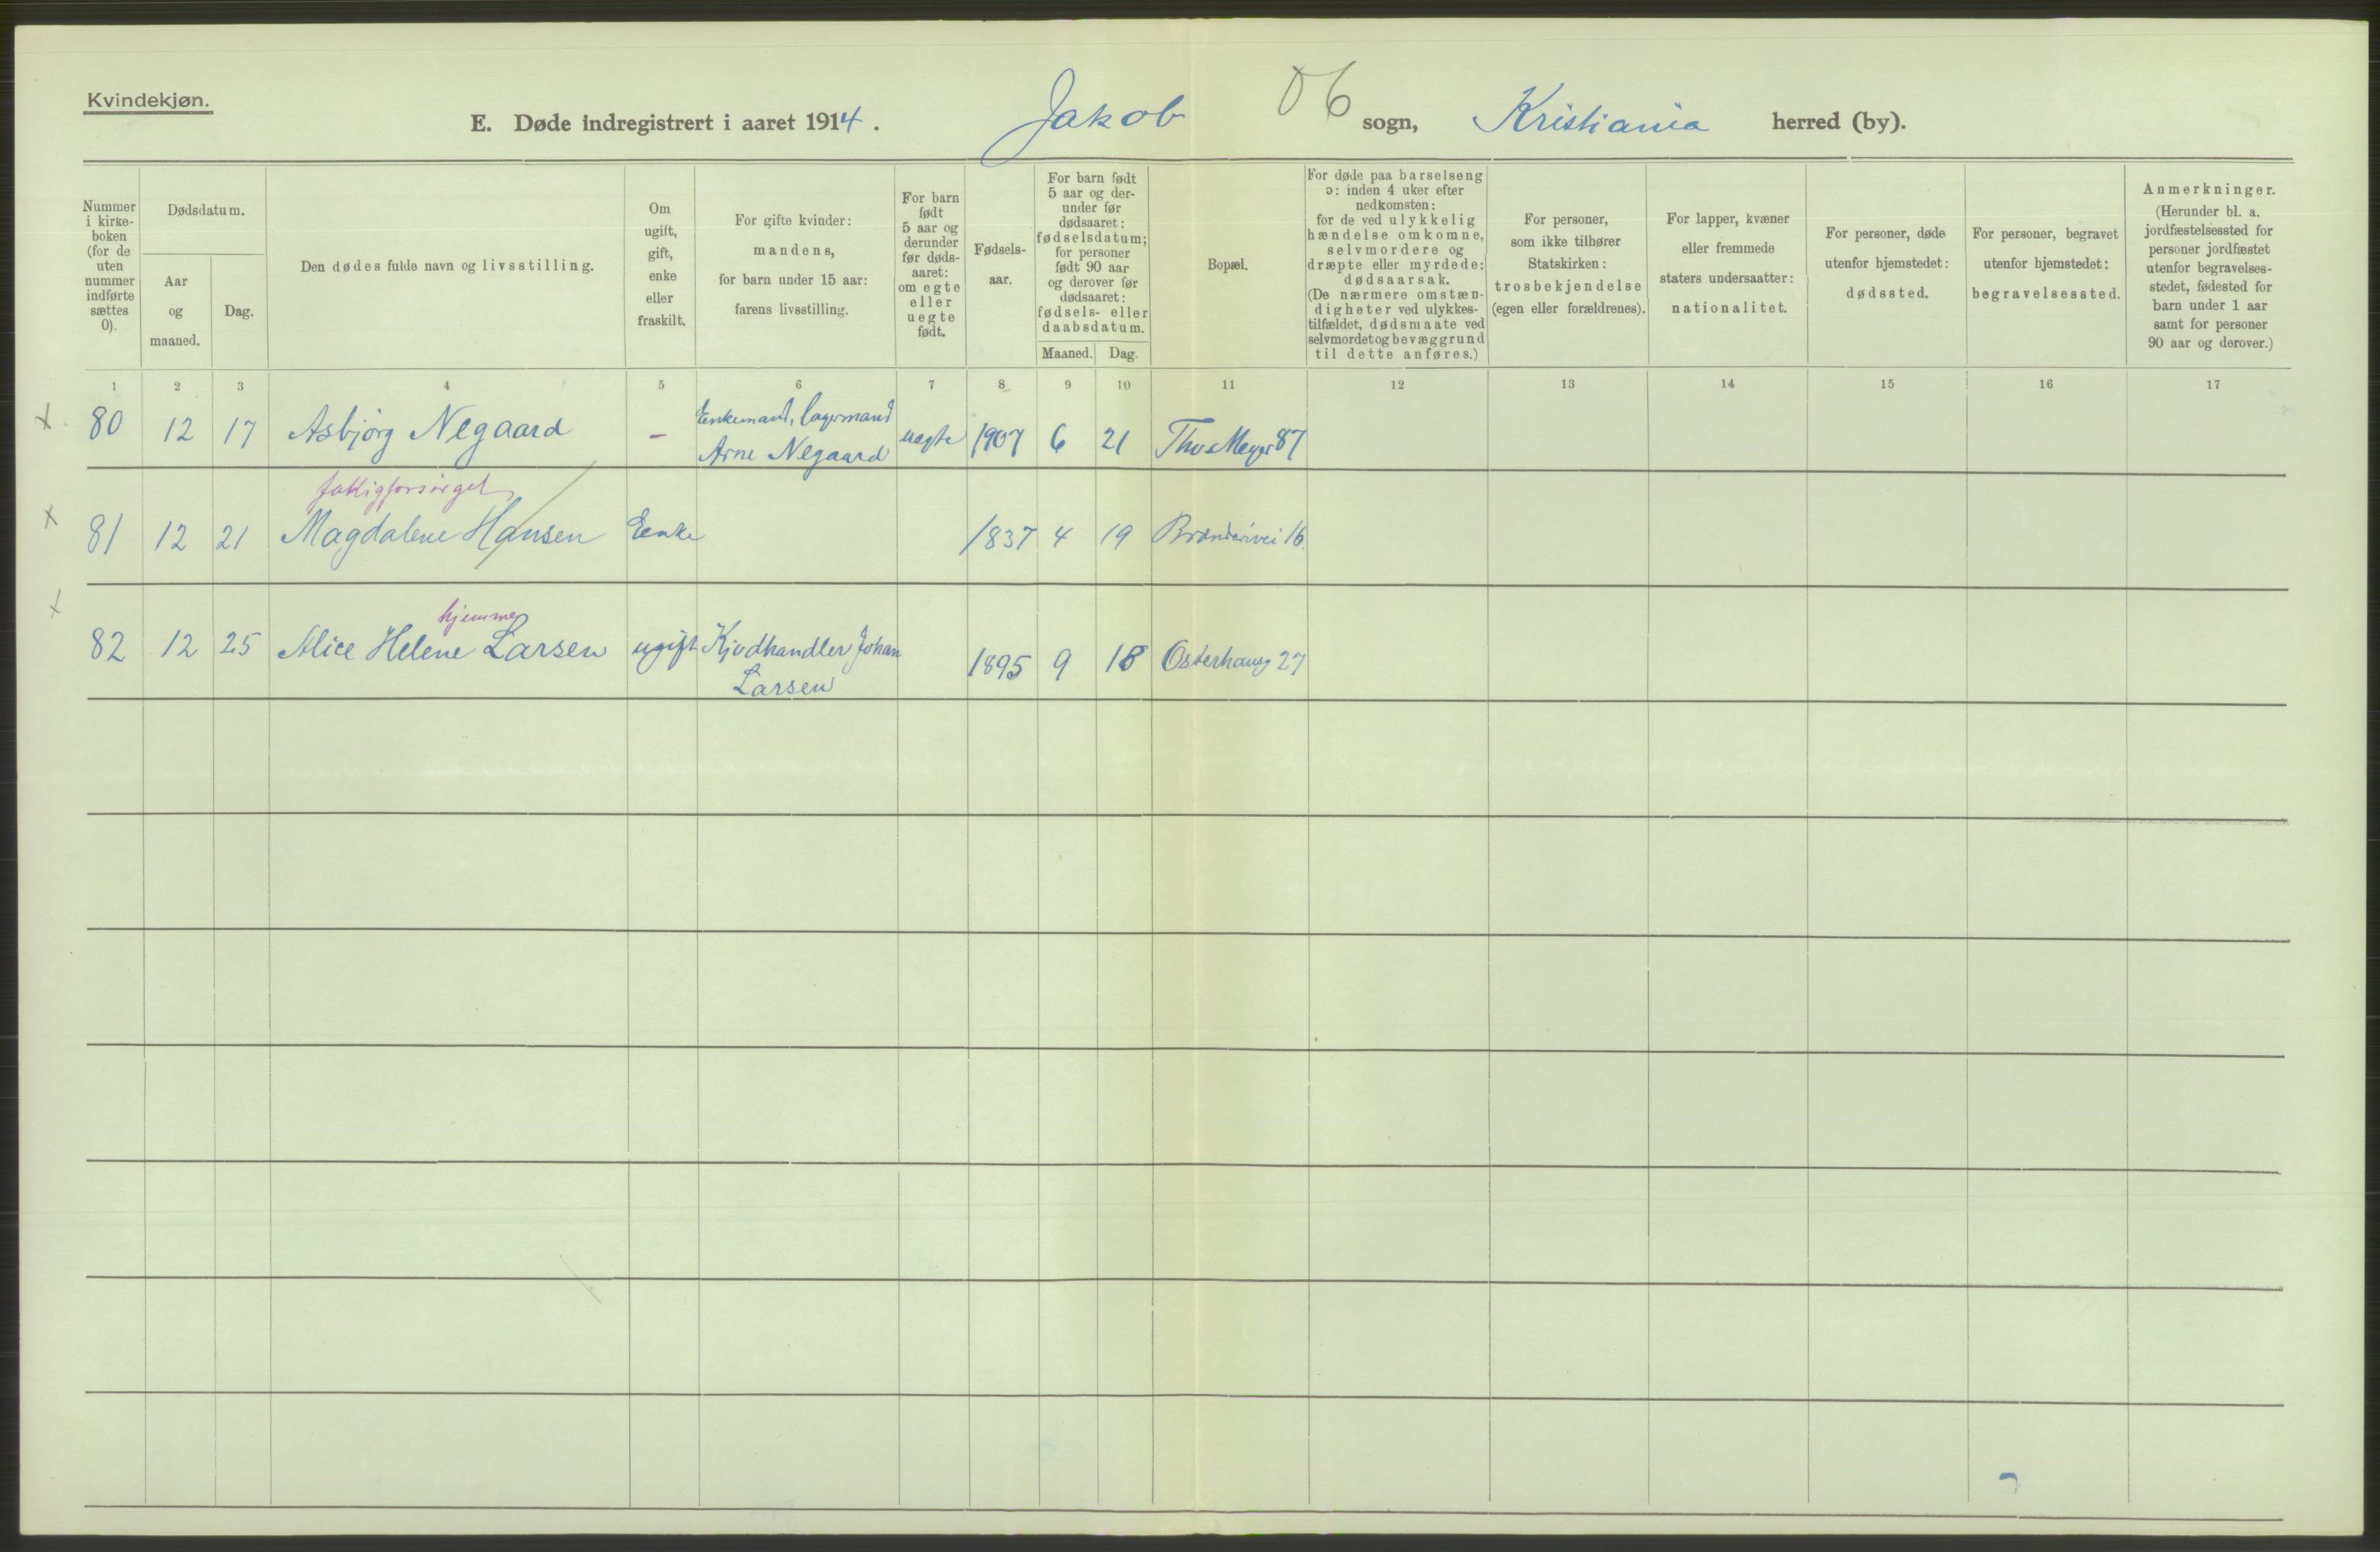 Kvindekjøn.
E. Døde indregistrert i aaret 1914. Jakob 06 sogn, Kristiania herred (by).
Nummer i kirke-boken (for de uten nummer indførte sættes 0).
Dødsdatum.
Aar og maaned.
Dag.
Den dødes fulde navn og livsstilling.
Om ugift, gift, enke eller fraskilt.
For gifte kvinder: mandens, for barn under 15 aar: farens livsstilling.
For barn født 5 aar og derunder før døds-aaret: om egte eller uegte født.
Fødsels-aar.
For barn født 5 aar og der-under før dødsaaret: fødselsdatum; for personer født 90 aar og derover før dødsaaret: fødsels- eller daabsdatum.
Maaned.
Dag.
Bopæl.
For døde paa barselseng ɔ: inden 4 uker efter nedkomsten: for de ved ulykkelig hændelse omkomne, selvmordere og dræpte eller myrdede: dødsaarsak. (De nærmere omstæn-digheter ved ulykkes-tilfældet, dødsmaate ved selvmordet og bevæggrund til dette anføres.)
For personer, som ikke tilhører Statskirken: trosbekjendelse (egen eller forældrenes).
For lapper, kvæner eller fremmede staters undersaatter: nationalitet.
For personer, døde utenfor hjemstedet: dødssted.
For personer, begravet utenfor hjemstedet: begravelsessted.
Anmerkninger. (Herunder bl. a. jordfæstelsessted for personer jordfæstet utenfor begravelses-stedet, fødested for barn under 1 aar samt for personer 90 aar og derover.)
1 2 3 4 5 6 7 8 9 10 11 12 13 14 15 16 17
80 12 17 Asbjørg Negaard - Enkemand, lagermand Arne Negaard uegte 1907 6 21 Ths Meyer 87
fattigforsørget
81 12 21 Magdalene Hansen Enke 1837 4 19 16
hjemme
82 12 25 Alice Helene Larsen ugift Kjødhandler Johan Larsen 1895 9 18 Osterhausg 27